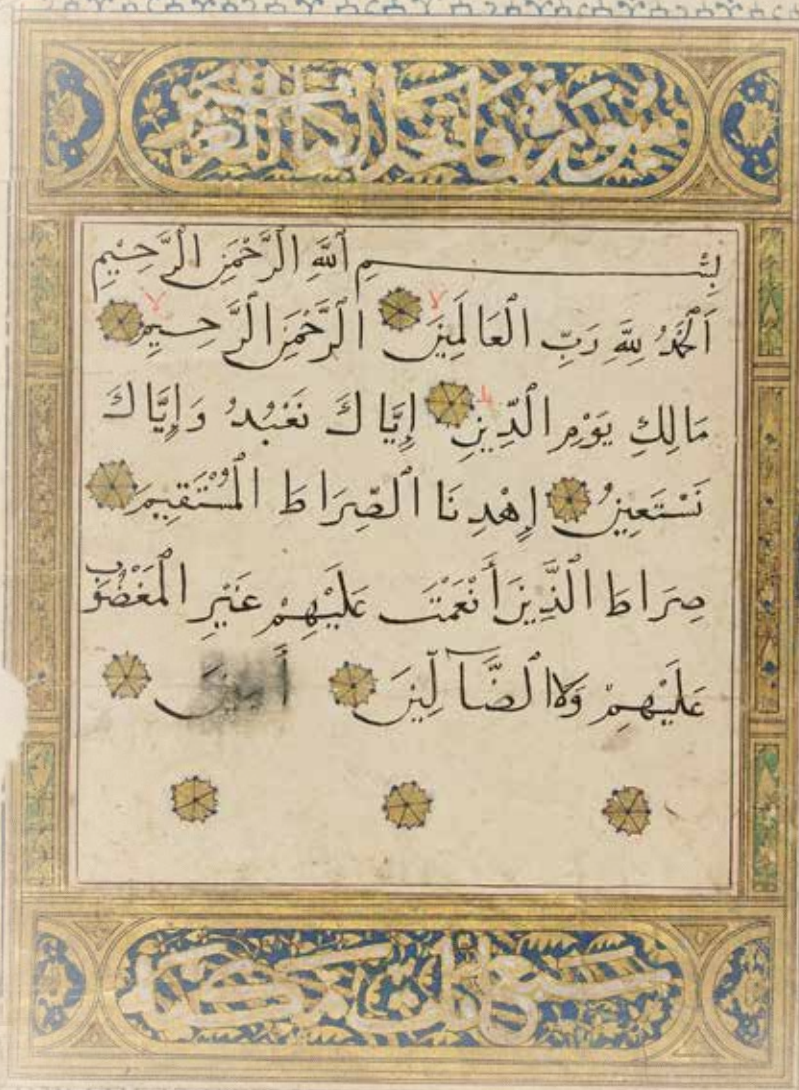 سورة فاتحة الكتاب
بِسْمِ اللَّهِ الرَّحْمَٰنِ الرَّحِيمِ
اَلْحَمْدُ لِلَّهِ رَبِّ الْعَالَمِينَ لا الرَّحْمَٰنِ الرَّحِيمِ لا
مَالِكِ يَوْمِ الدِّينِ ط إِيَّاكَ نَعْبُدُ وَإِيَّاكَ
نَسْتَعِينُ إِهْدِنَا الصِّرَاطَ الْمُسْتَقِيمَ
صِرَاطَ الَّذِينَ أَنْعَمْتَ عَلَيْهِمْ غَيْرِ الْمَغْضُوبِ
عَلَيْهِمْ وَلَا الضَّآلِّينَ أَمِينَ